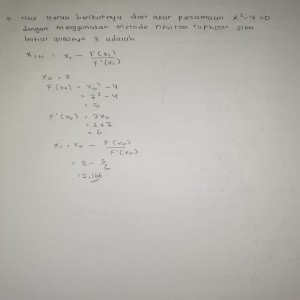 Nilai iterasi berikutnya dari akar persamaan x² - 4 = 0
dengan menggunakan metode newton raphson jika
initial guessnya 3 adalah
x_{i+1} = x_i - F(x_i) / F'(x_i)
x_0 = 3
F(x_0) = x_0² - 4
= 3² - 4
= 5
F'(x_0) = 2x_0
= 2 x 3
= 6
x_1 = x_0 - F(x_0) / F'(x_0)
= 3 - 5/6
= 2,166